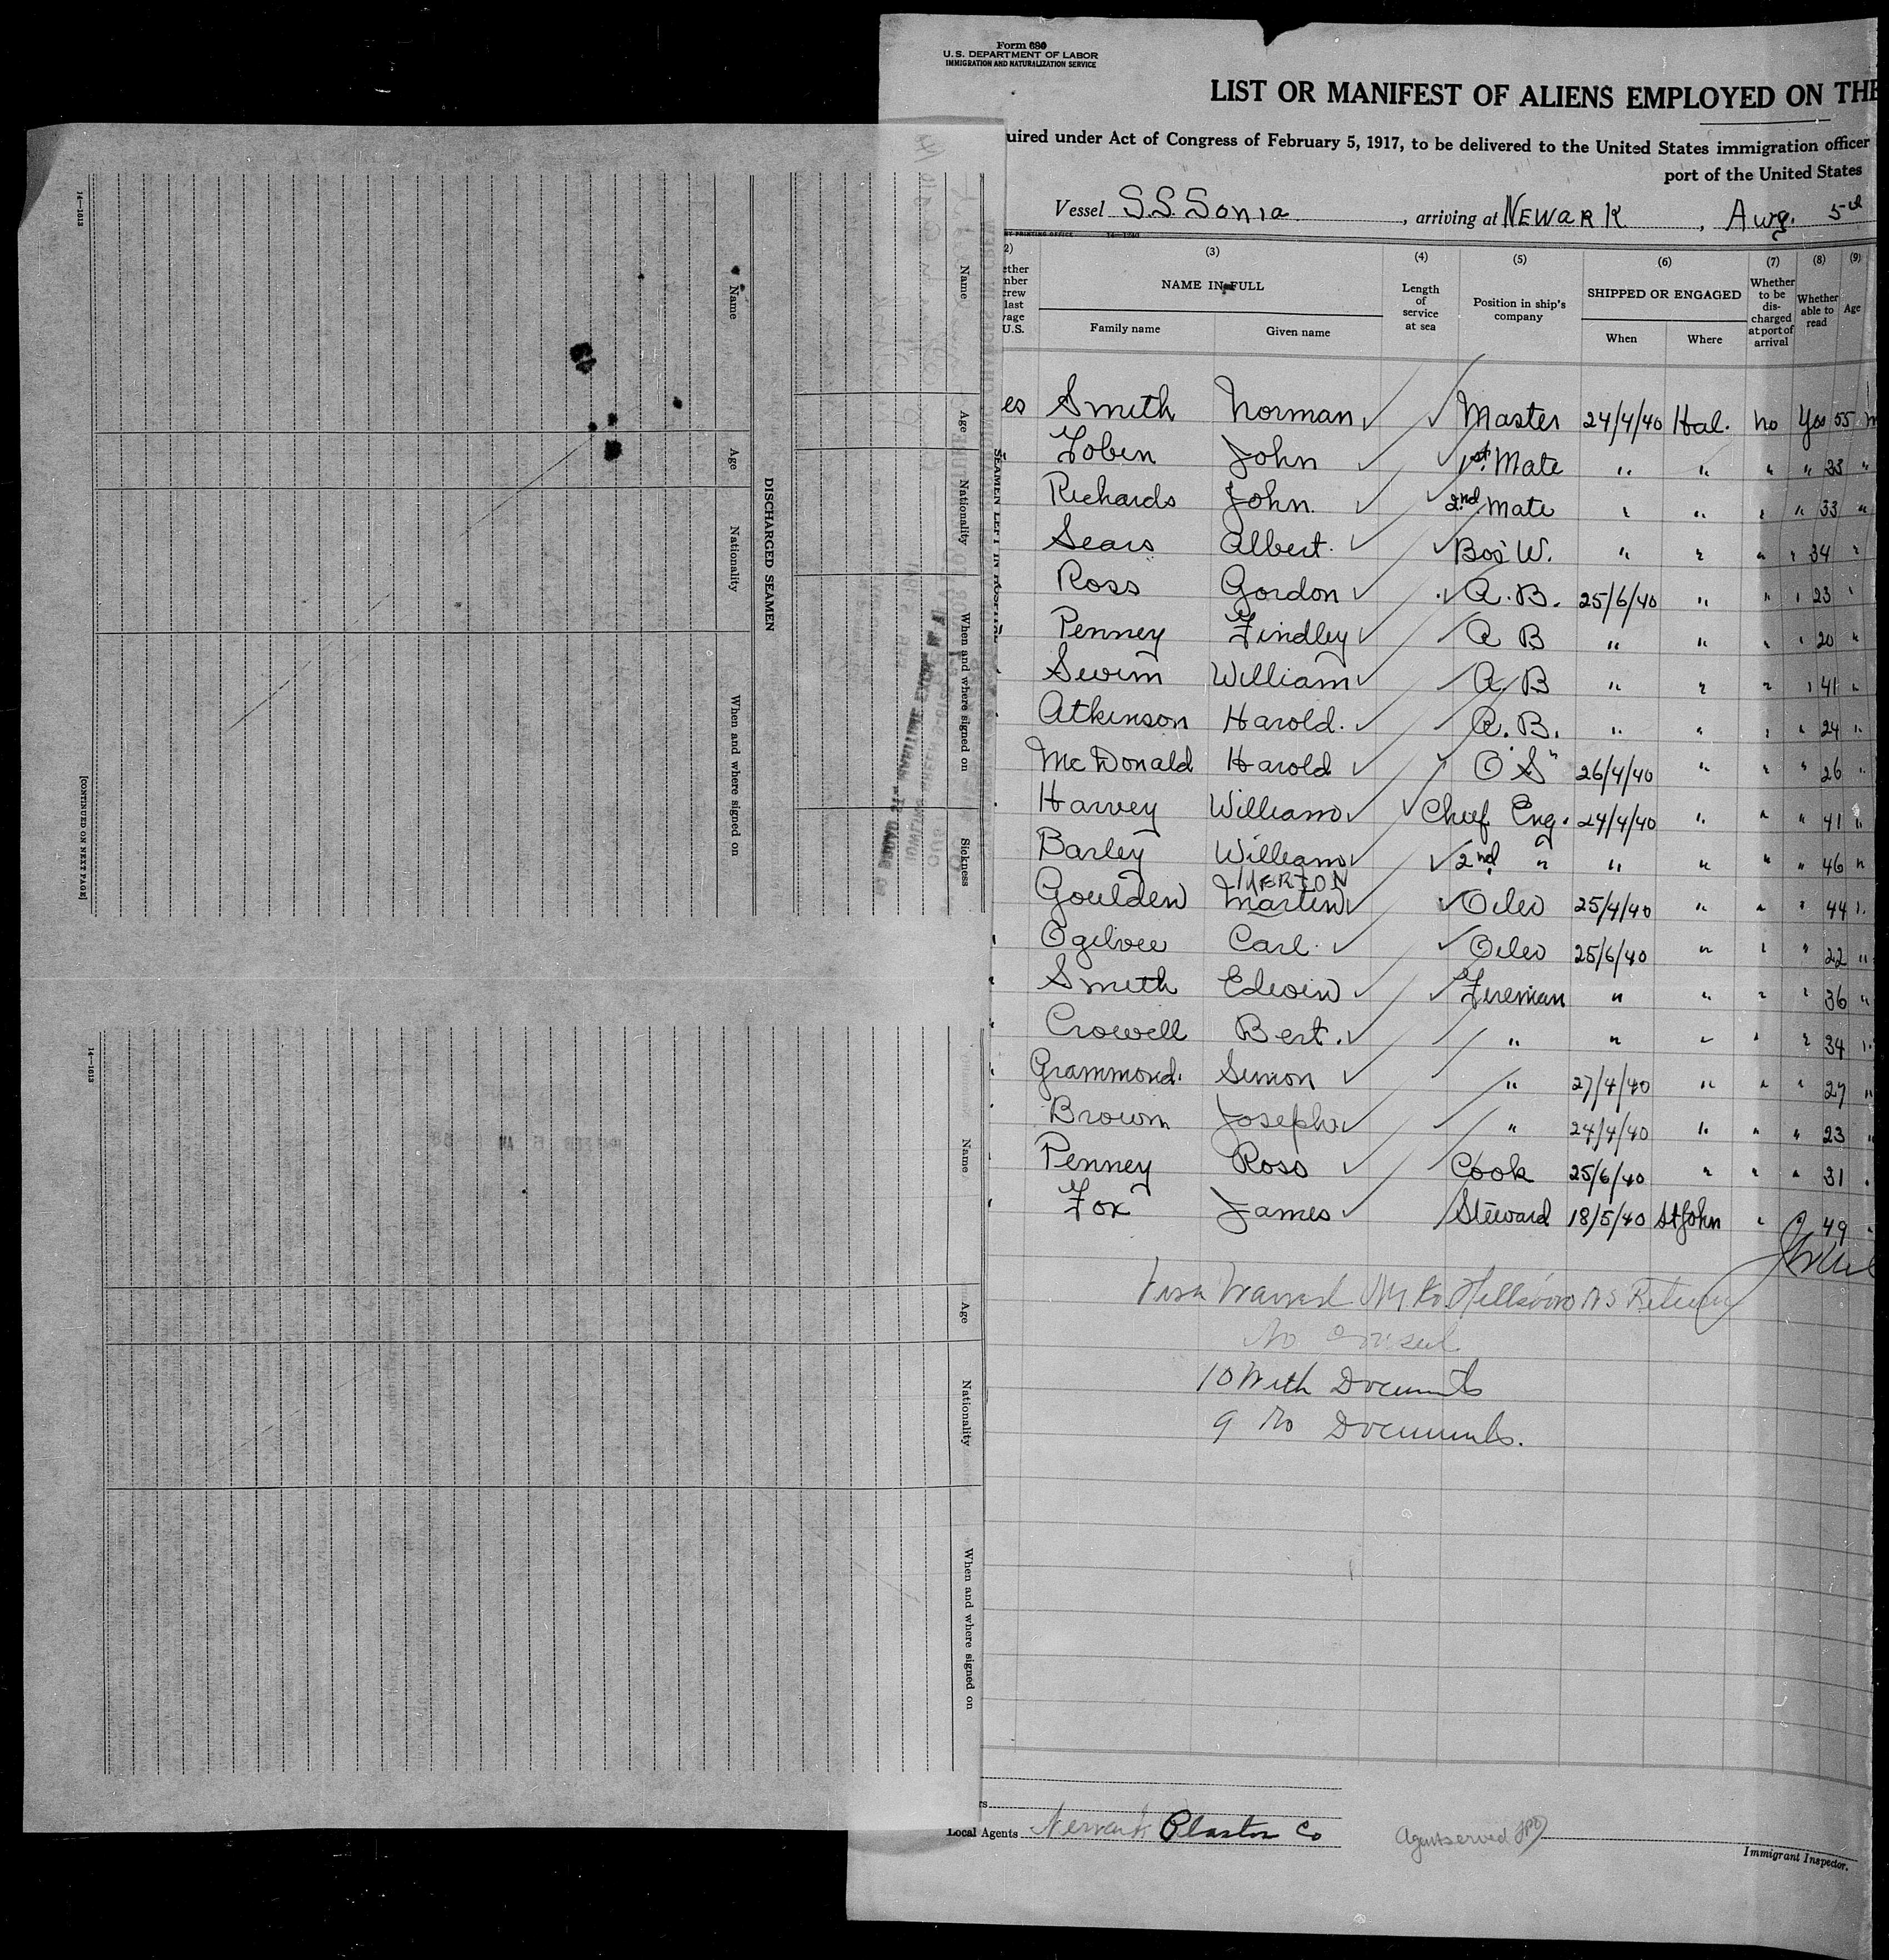 Form 680
U.S. DEPARTMENT OF LABOR
IMMIGRATION AND NATURALIZATION SERVICE
LIST OR MANIFEST OF ALIENS EMPLOYED ON THE
uired under Act of Congress of February 5, 1917, to be delivered to the United States immigration officer
port of the United States
Vessel S.S. Sonia, arriving at NEWARK, Aug. 5th
(3) (4) (5) (6) (7) (8) (9)
NAME IN FULL
Family name Given name
Length of service at sea
Position in ship's company
SHIPPED OR ENGAGED
When Where
Whether to be discharged at port of arrival
Whether able to read
Age
es Smith Norman Master 24/4/40 Hal. no Yes 55
Tobin John 1st Mate " " " " 33 "
Richards John. 2nd Mate " " " " 33 "
Sears Albert. Bos'W. " " " " 34 "
Ross Gordon A.B. 25/6/40 " " " 23 "
Penney Findley A B " " " " 20 "
Swim William A.B " " " " 41 "
Atkinson Harold. A.B. " " " " 24 "
McDonald Harold O S 26/4/40 " " " 26 "
Harvey William Chief Eng. 24/4/40 " " " 41 "
Barley William 2nd " " " " " 46 "
MERTON
Goulden Martin Oiler 25/4/40 " " " 44 "
Ogilvee Carl. Oiler 25/6/40 " " " 22 "
Smith Edwin Fireman " " " " 36 "
Crowell Bert. " " " " " 34 "
Grammond. Simon " 27/4/40 " " " 27 "
Brown Joseph " 24/4/40 " " " 23 "
Penney Ross Cook 25/6/40 " " " 31 "
Fox James Steward 18/5/40 St John " " 49 "
Visa Waived NY to Hillsboro NS Return
No Consul
10 With Documents
9 No Documents.
Local Agents Newark Plaster Co
Agent served
Immigrant Inspector.
SEAMEN LEFT IN HOSPITAL
Name Age Nationality When and where signed on Sickness
DISCHARGED SEAMEN
Name Age Nationality When and where signed on
14—1613
[CONTINUED ON NEXT PAGE]
Name Age Nationality When and where signed on
14—1613